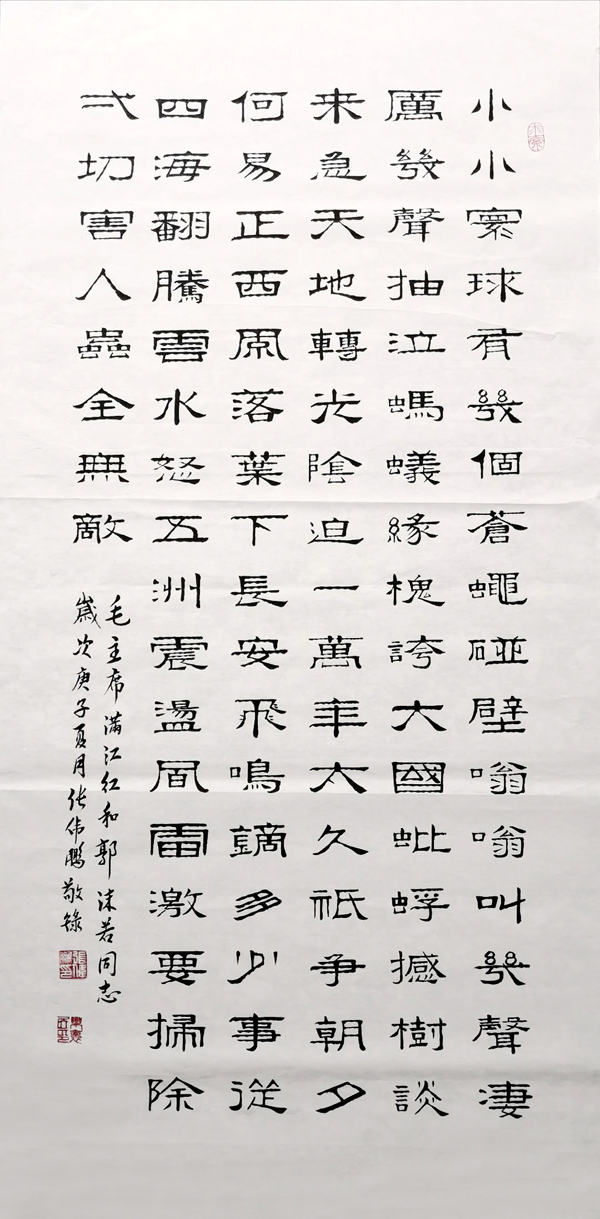 小小寰球有幾個蒼蠅碰壁嗡嗡叫幾聲淒
厲幾聲抽泣螞蟻緣槐誇大國蚍蜉撼樹談
何易正西風落葉下長安飛鳴鏑多少事從
来急天地轉光陰迫一萬年太久祇争朝夕
四海翻騰雲水怒五洲震盪風雷激要掃除
弌切害人蟲全無敵
毛主席满江红和郭沫若同志
歲次庚子夏月张伟鹏敬録